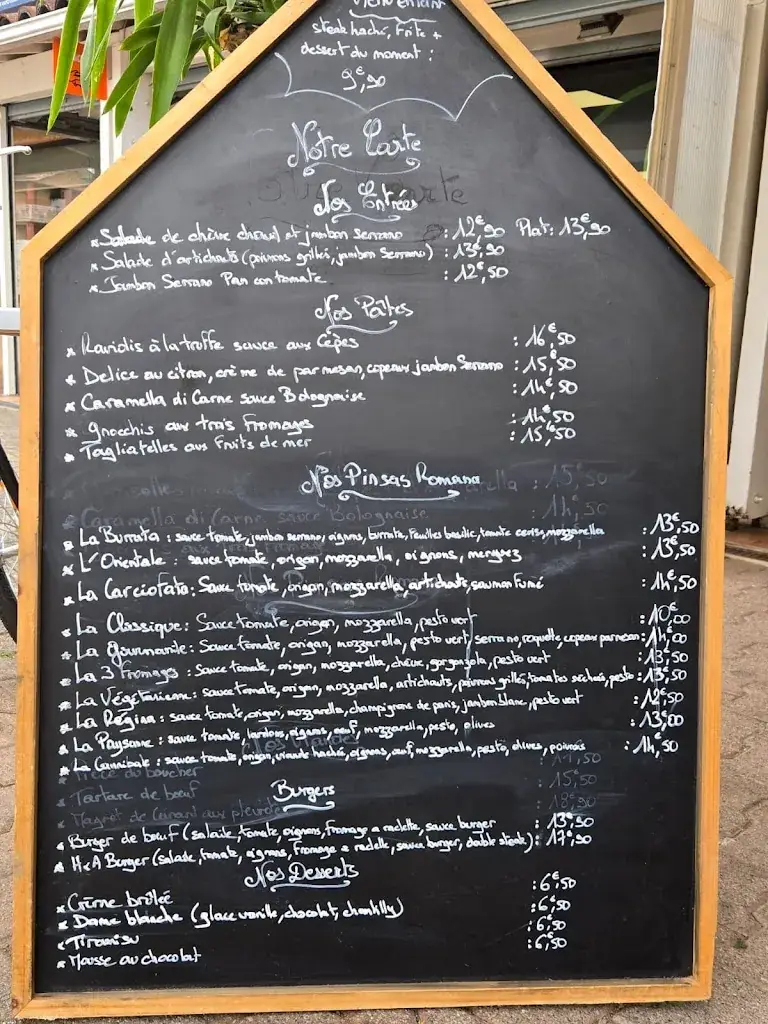 steak haché, frite +
dessert du moment :
9€,90
Notre Carte
Nos Entrées
x Salade de chèvre chaud et jambon serrano : 12€,90 Plat: 13€,90
x Salade d'artichauts (poivrons grillés, jambon Serrano) : 13€,90
x Jambon Serrano Pan con tomate : 12€,50
Nos Pâtes
x Raviolis à la truffe sauce aux Cèpes : 16€,50
x Delice au citron, crème de parmesan, copeaux jambon Serrano : 15€,50
x Caramella di Carne sauce Bolognaise : 14€,50
x gnocchis aux trois Fromages : 14€,50
x Tagliatelles aux Fruits de mer : 15€,50
Nos Pinsas Romana
x La Burrata : sauce tomate, jambon serrano, oignons, burrata, feuilles basilic, tomate cerise, mozzarella : 13€,50
x L'Orientale : sauce tomate, origan, mozzarella, oignons, merguez : 13€,50
x La Carciofata: Sauce tomate, origan, mozzarella, artichauts, saumon fumé : 14€,50
x La Classique : Sauce tomate, origan, mozzarella, pesto vert : 10€,00
x La gourmande : Sauce tomate, origan, mozzarella, pesto vert, serrano, roquette, copeaux parmesan : 14€,00
x La 3 Fromages : Sauce tomate, origan, mozzarella, chèvre, gorgonzola, pesto vert : 13€,50
x La Végétarienne : sauce tomate, origan, mozzarella, artichauts, poivrons grillés, tomates séchées, pesto : 13€,50
x La Régina : sauce tomate, origan, mozzarella, champignons de paris, jambon blanc, pesto vert : 12€,50
x La Paysane : sauce tomate, lardons, oignons, œuf, mozzarella, pesto, olives : 13€,00
x La Cannibale : sauce tomate, origan, viande hachée, oignons, œuf, mozzarella, pesto, olives, poivrons : 14€,50
Burgers
x Burger de bœuf (salade, tomate, oignons, fromage a raclette, sauce burger : 13€,50
x H&A Burger (salade, tomate, oignons, fromage a raclette, sauce burger, double steak) : 17€,50
Nos Desserts
x Crème brûlée : 6€,50
x Dame blanche (glace vanille, chocolat, chantilly) : 6€,50
x Tiramisu : 6€,50
x Mousse au chocolat : 6€,50